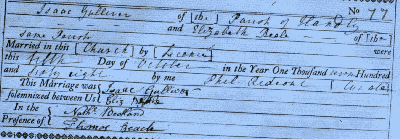 No 77
Isaac Gulliver of [the] Parish of Handley
and Elizabeth Beale of [the
same Parish were
Married in this [Church] by [Licence]
this fifth Day of October in the Year One Thousand seven Hundred
and sixty eight by me Phil Curate
This Marriage was Isaac Gulliver
solemnized between Us Eliz Beale
In the Nath
Presence of Elionor Beale